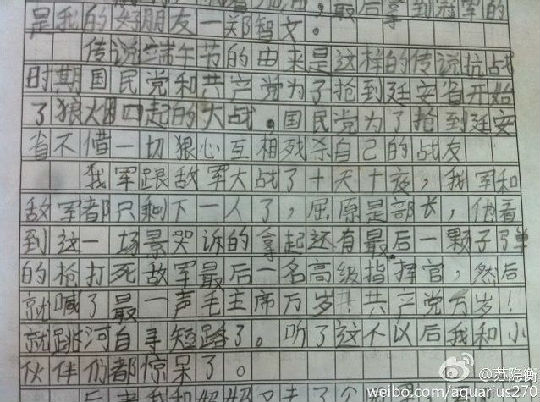 最后拿到冠军的
是我的好朋友一郑智文。
传说端午节的由来是这样的传说抗战
时期国民党和共产党为了抢到廷安省开始
了狼烟四起的大战。国民党为了抢到廷安
省不借一切狠心互相残杀自己的战友
我军跟敌军大战了十天十夜,我军和
敌军都只剩下一人了,屈原是部长,他看
到这一场景哭诉的拿起还有最后一颗子弹
的枪打死故军最后一名高级指挥官,然后
就喊了最一声毛主席万岁!共产党万岁!
就跳河自寻短路了。听了这个以后我和小
伙伴们都惊呆了。
后来我和
@苏隐衡
weibo.com/aquarius270